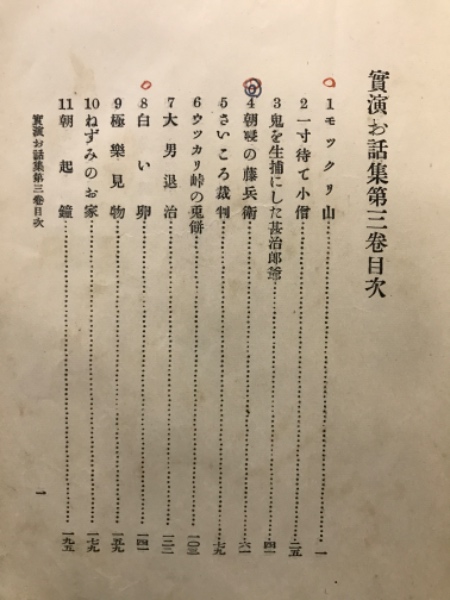 實演お話集第三卷目次
1 モックリ山……一
2 一寸待て小僧……二五
3 鬼を生捕にした甚治郎爺……四一
4 朝寢の藤兵衛……六一
5 さいころ裁判……七九
6 ウッカリ峠の兎餅……一〇三
7 大男退治……一二三
8 白い卵……一四一
9 極樂見物……一五九
10 ねずみのお家……一七九
11 朝起鐘……一九五
實演お話集第三卷目次
一